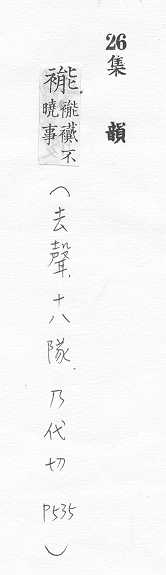 26集 韻
褦.褦襶不曉事(去聲.十八隊.乃代切 P535)